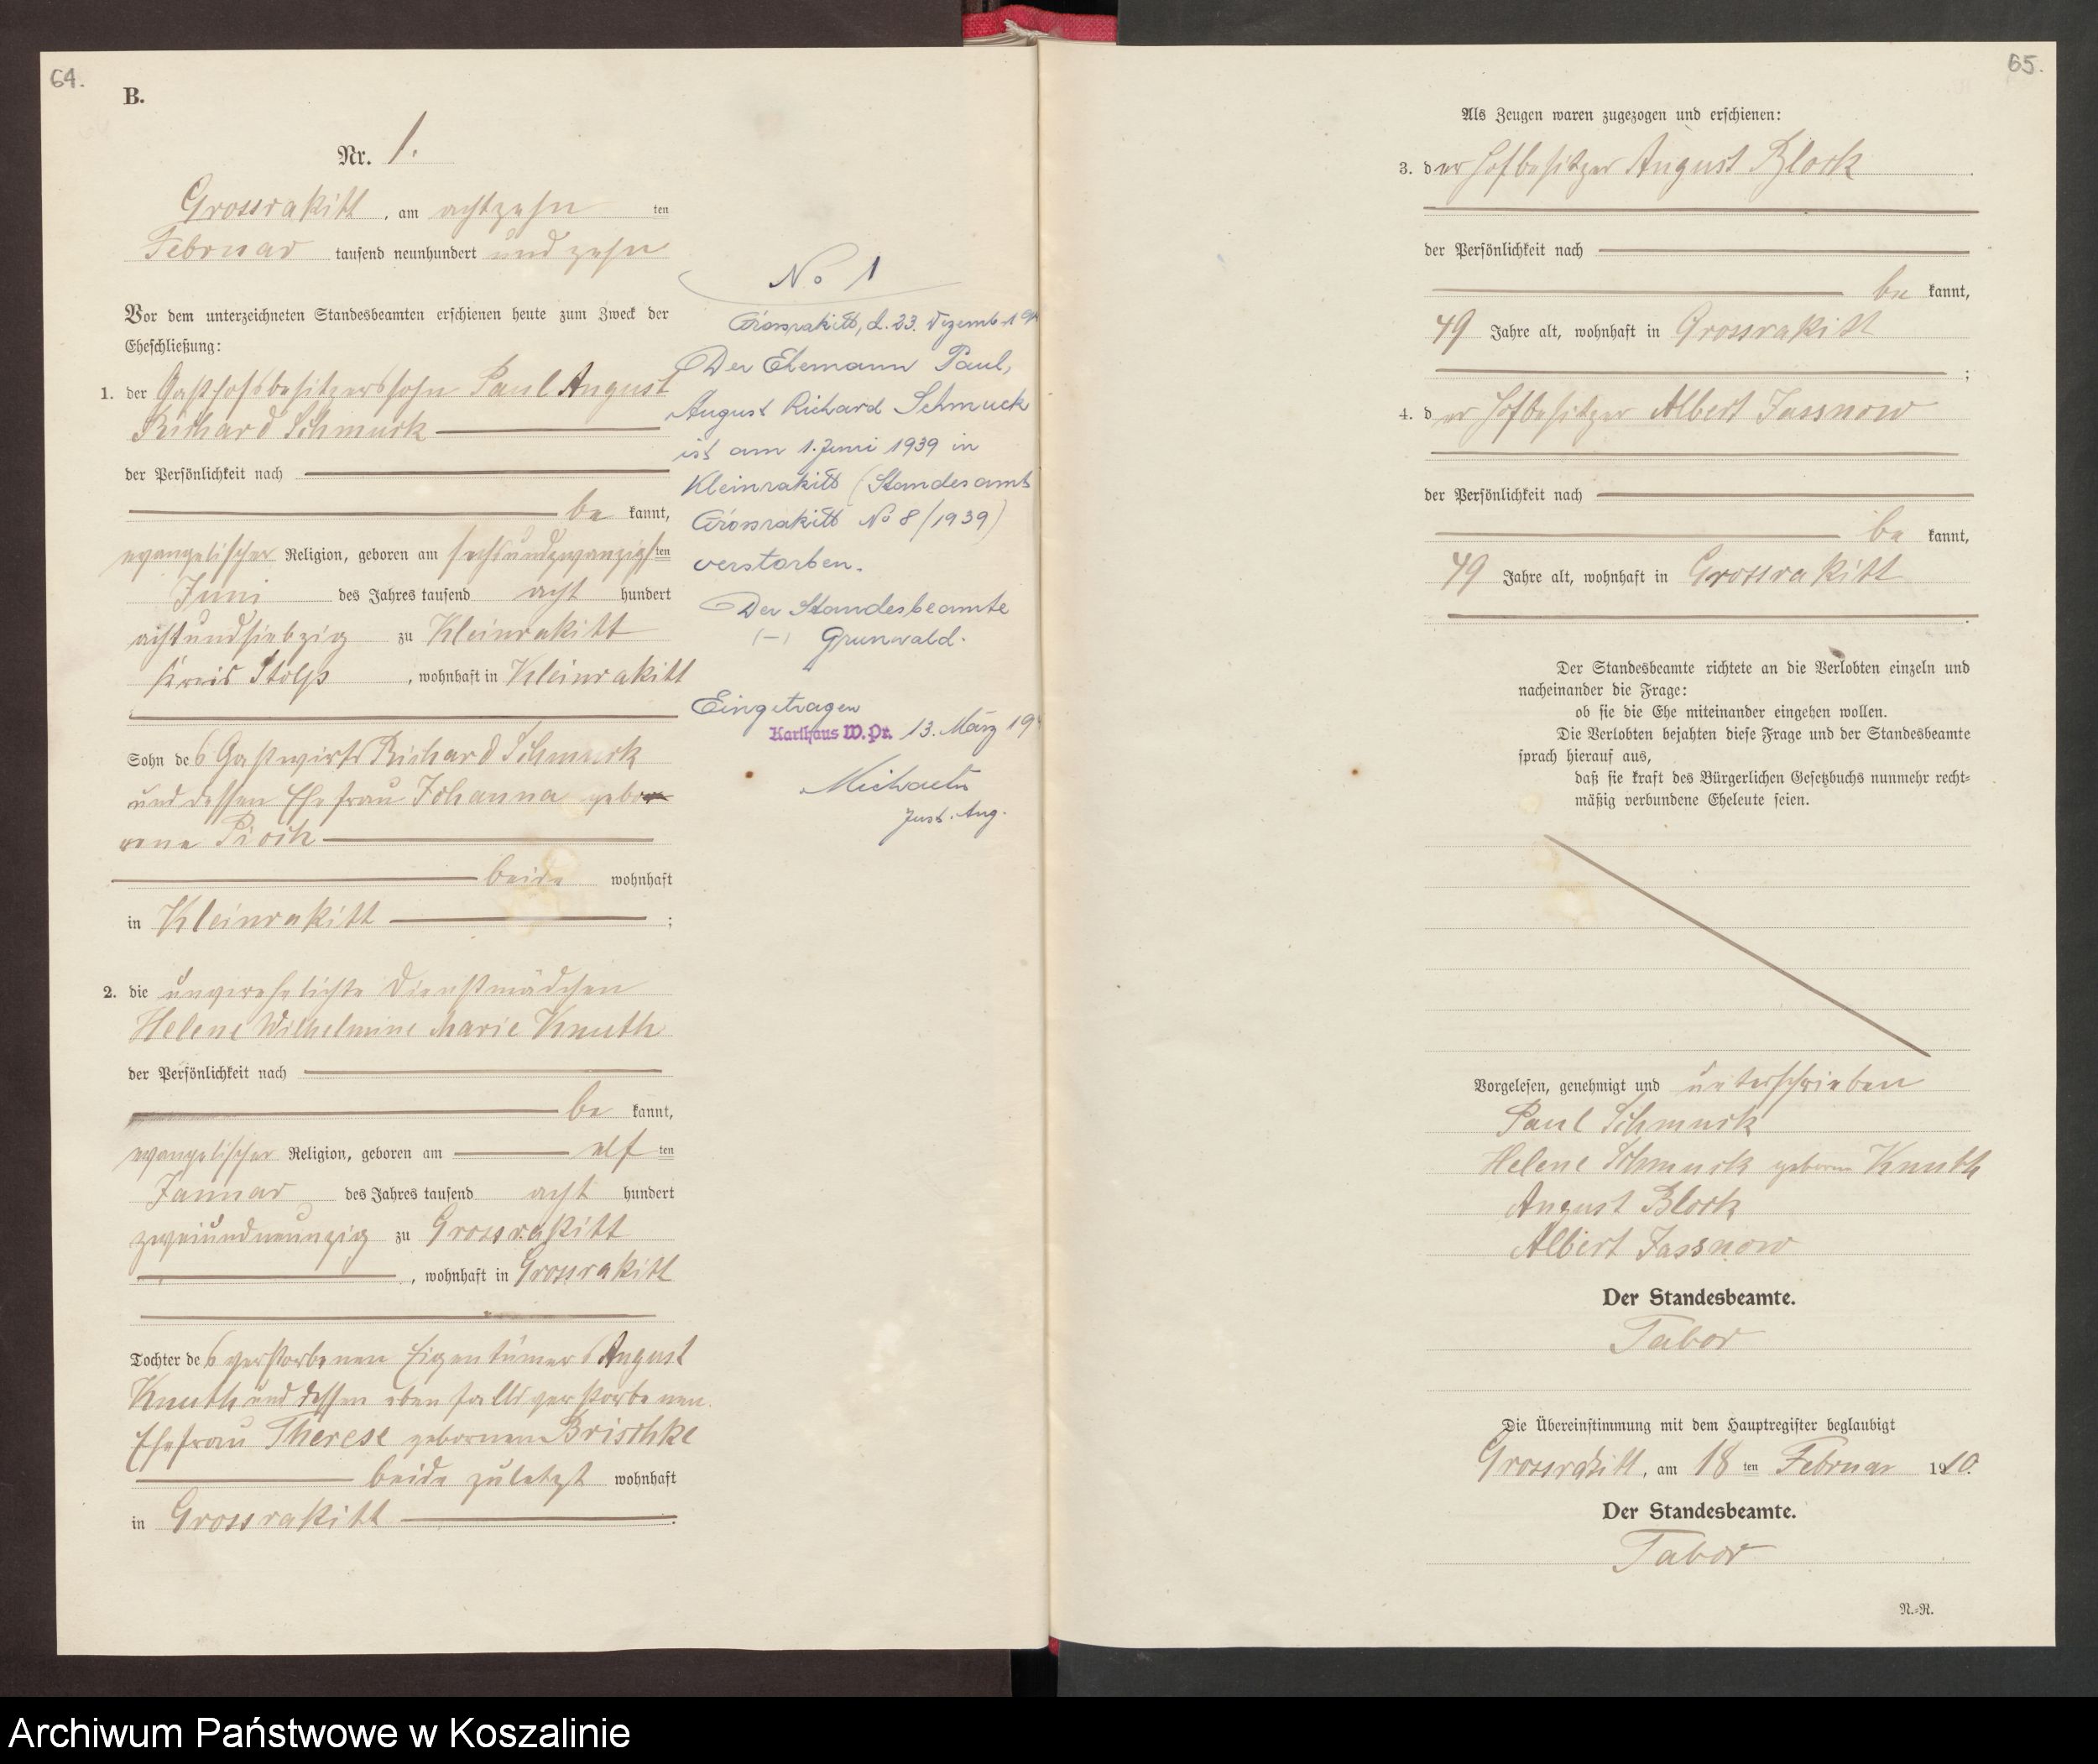 64.
B.
Nr. 1.
Grossrakitt, am achtzehn ten
Februar tausend neunhundert und zehn
Vor dem unterzeichneten Standesbeamten erschienen heute zum Zweck der
Eheschließung:
1. der Gasthofsbesitzerssohn Paul August
Richard Schmuck
der Persönlichkeit nach
be kannt,
evangelischer Religion, geboren am sechsundzwanzigsten
Juni des Jahres tausend acht hundert
achtundsiebzig zu Kleinrakitt
Kreis Stolp, wohnhaft in Kleinrakitt
Sohn des Gastwirts Richard Schmuck
und dessen Ehefrau Johanna gebor
rene Pioch
beide wohnhaft
in Kleinrakitt ;
2. die unverehelichte Dienstmädchen
Helene Wilhelmine Marie Knuth
der Persönlichkeit nach
be kannt,
evangelischer Religion, geboren am elf ten
Januar des Jahres tausend acht hundert
zweiundneunzig zu Grossrakitt
, wohnhaft in Grossrakitt
Tochter des verstorbenen Eigentümers August
Knuth und dessen ebenfalls verstorbenen
Ehefrau Therese gebornen Brischke
beide zuletzt wohnhaft
in Grossrakitt .
No 1
Grossrakitt, d. 23. Dezemb. 19
Der Ehemann Paul,
August Richard Schmuck
ist am 1. Juni 1939 in
Kleinrakitt (Standesamt
Grossrakitt No 8/1939)
verstorben.
Der Standesbeamte
(-) Grunwald.
Eingetragen
Karthaus W.Pr. 13. März 19
Just. Ang.
65.
Als Zeugen waren zugezogen und erschienen:
3. der Hofbesitzer August Block
der Persönlichkeit nach
be kannt,
49 Jahre alt, wohnhaft in Grossrakitt
;
4. der Hofbesitzer Albert Jassnow
der Persönlichkeit nach
be kannt,
49 Jahre alt, wohnhaft in Grossrakitt
.
Der Standesbeamte richtete an die Verlobten einzeln und
nacheinander die Frage:
ob sie die Ehe miteinander eingehen wollen.
Die Verlobten bejahten diese Frage und der Standesbeamte
sprach hierauf aus,
daß sie kraft des Bürgerlichen Gesetzbuchs nunmehr recht=
mäßig verbundene Eheleute seien.
Vorgelesen, genehmigt und unterschrieben
Paul Schmuck
Helene Schmuck geborne Knuth
August Block
Albert Jassnow
Der Standesbeamte.
Tabor
Die Übereinstimmung mit dem Hauptregister beglaubigt
Grossrakitt, am 18 ten Februar 1910.
Der Standesbeamte.
Tabor
N.=R.
Archiwum Państwowe w Koszalinie